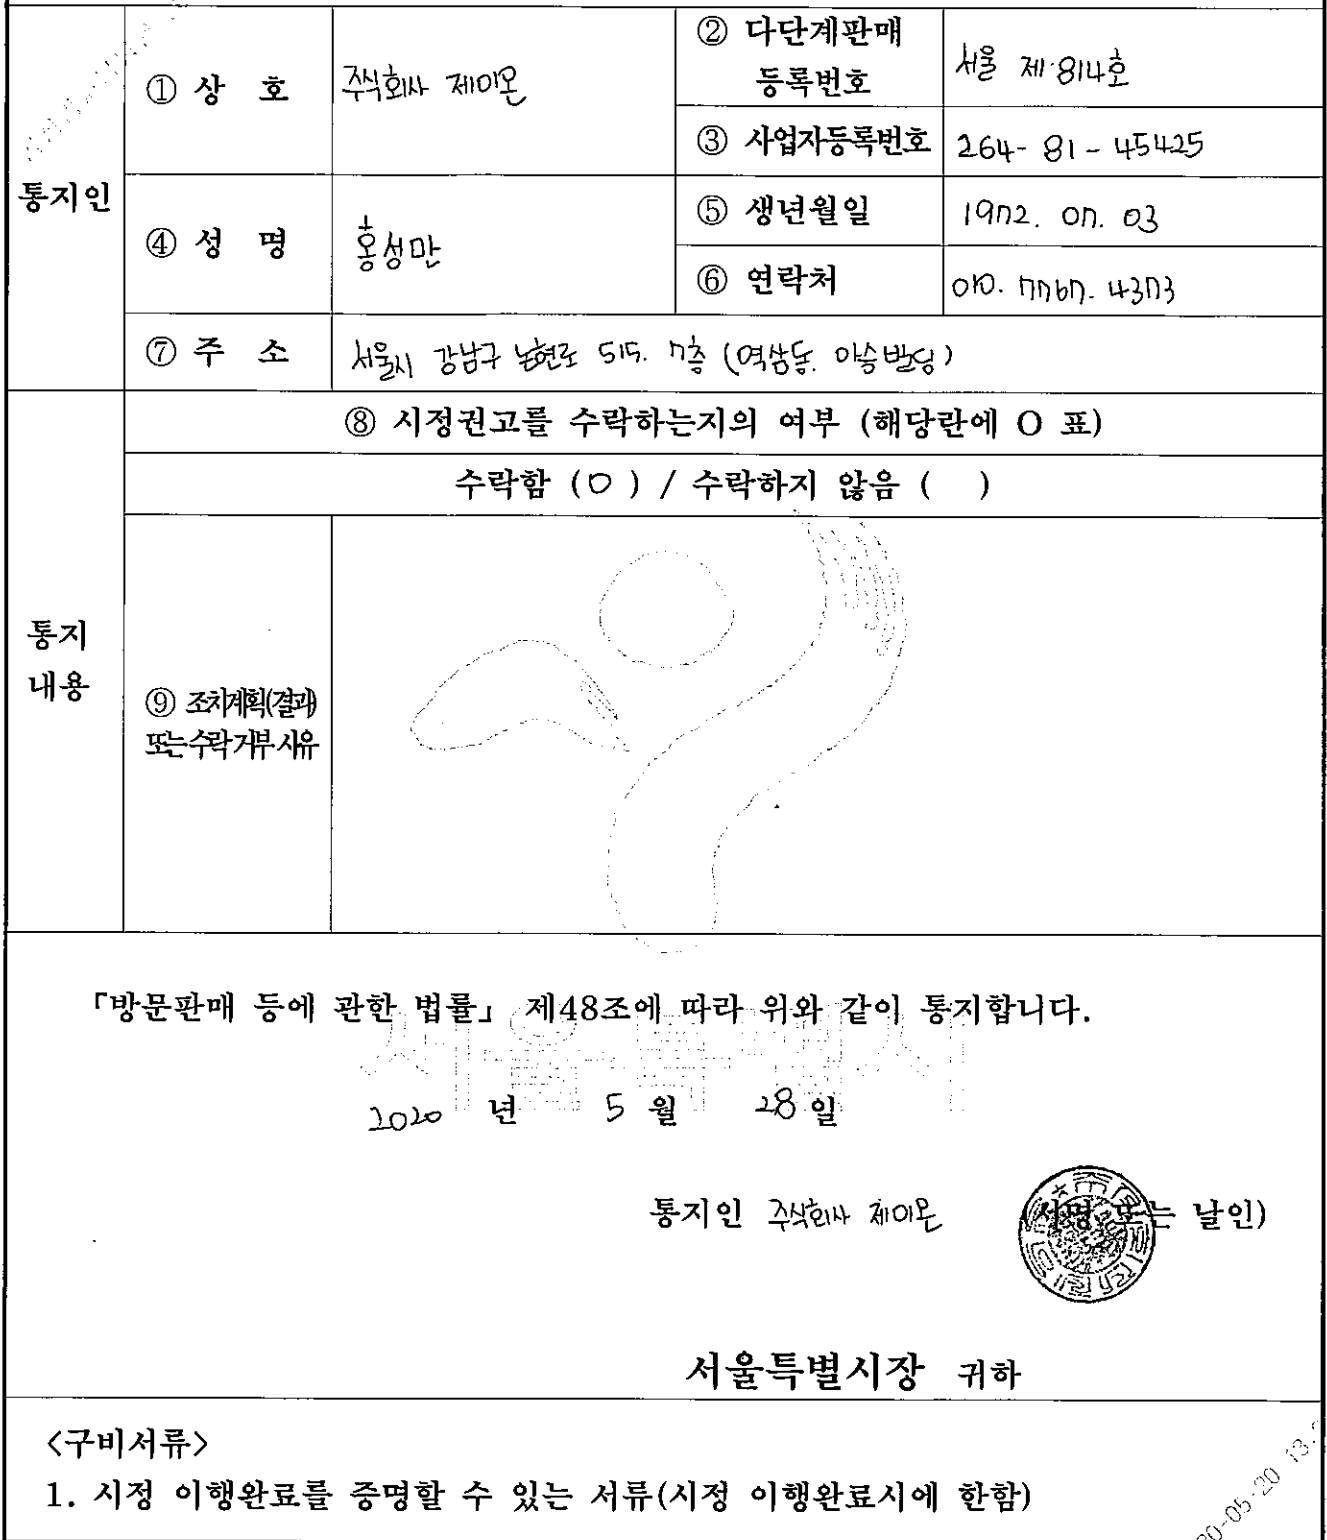 통지인
① 상 호
주식회사 제이몬
② 다단계판매
등록번호
서울 제814호
③ 사업자등록번호
264-81-45425
④ 성 명
홍성만
⑤ 생년월일
1972. 07. 03
⑥ 연락처
010. 7767. 4373
⑦ 주 소
서울시 강남구 논현로 515. 7층 (역삼동. 아승빌딩)
통지
내용
⑧ 시정권고를 수락하는지의 여부 (해당란에 O 표)
수락함 (O) / 수락하지 않음 ( )
⑨ 조치계획(결과)
또는 수락 거부 사유
「방문판매 등에 관한 법률」 제48조에 따라 위와 같이 통지합니다.
서울특별시
2020 년 5 월 28 일
통지인 주식회사 제이몬 (서명 또는 날인)
서울특별시장 귀하
<구비서류>
1. 시정 이행완료를 증명할 수 있는 서류(시정 이행완료시에 한함)